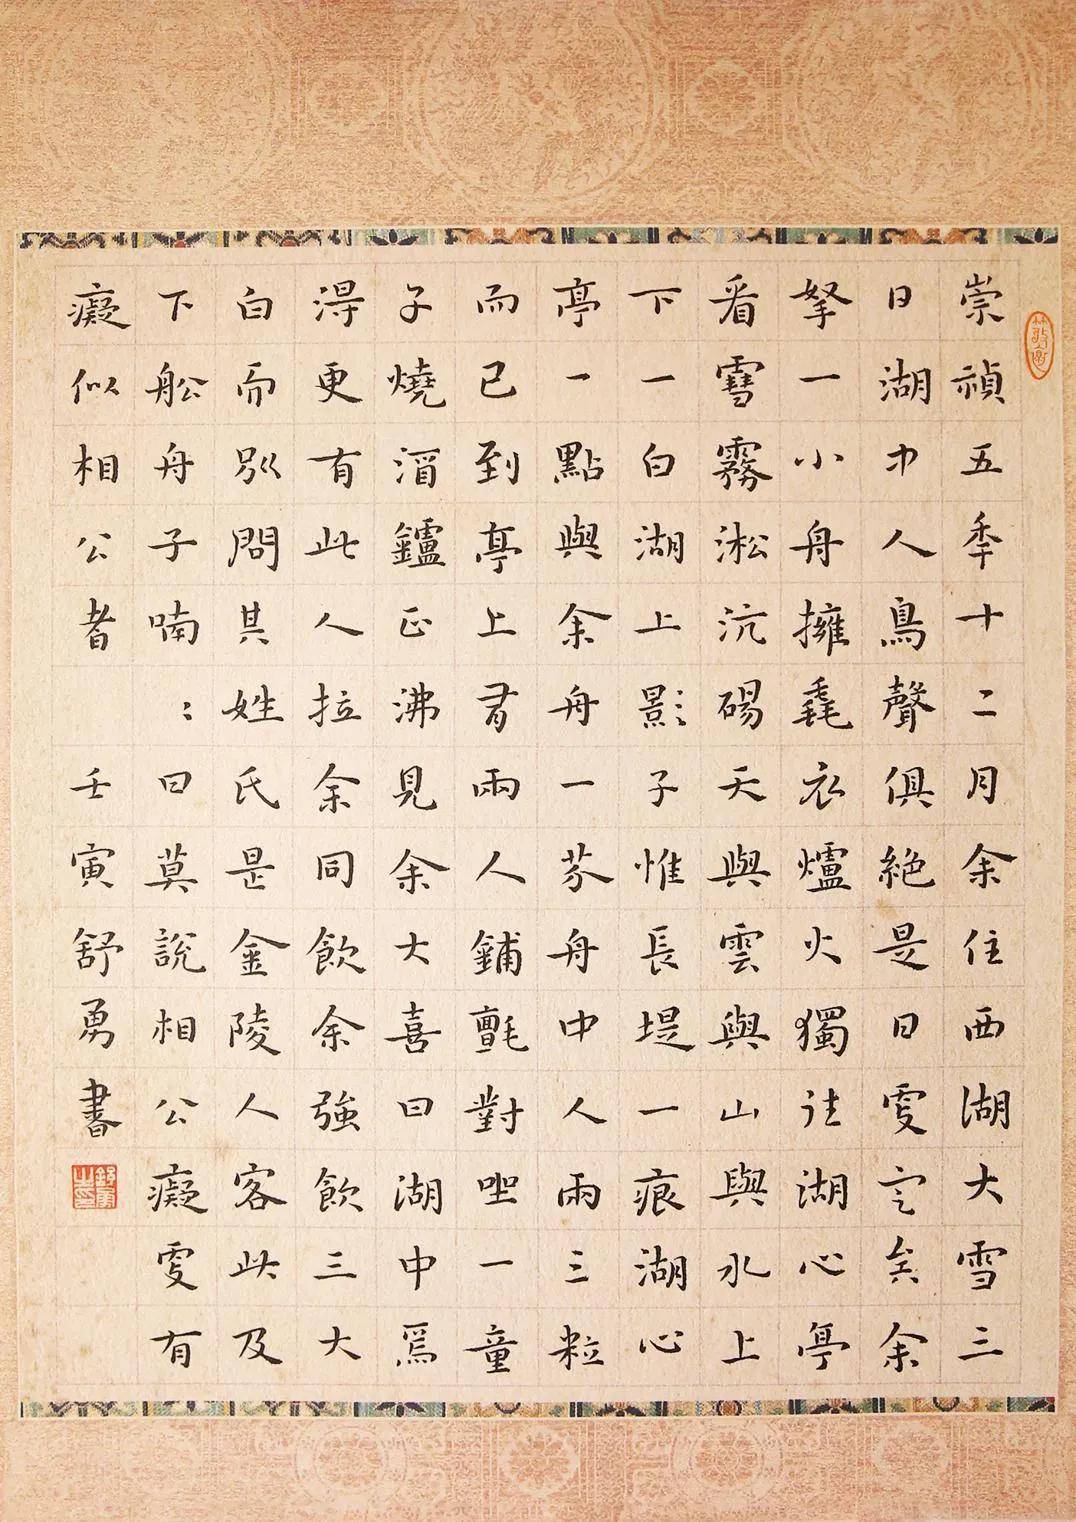 崇禎五秊十二月余住西湖大雪三
日湖中人鳥聲俱絕是日更定矣余
拏一小舟擁毳衣爐火獨往湖心亭
看雪霧淞沆碭天與雲與山與水上
下一白湖上影子惟長堤一痕湖心
亭一點與余舟一芥舟中人兩三粒
而已到亭上有兩人鋪氈對坐一童
子燒酒鑪正沸見余大喜曰湖中焉
得更有此人拉余同飲余強飲三大
白而別問其姓氏是金陵人客此及
下船舟子喃：曰莫說相公癡更有
癡似相公者 壬寅舒勇書
舒勇之印